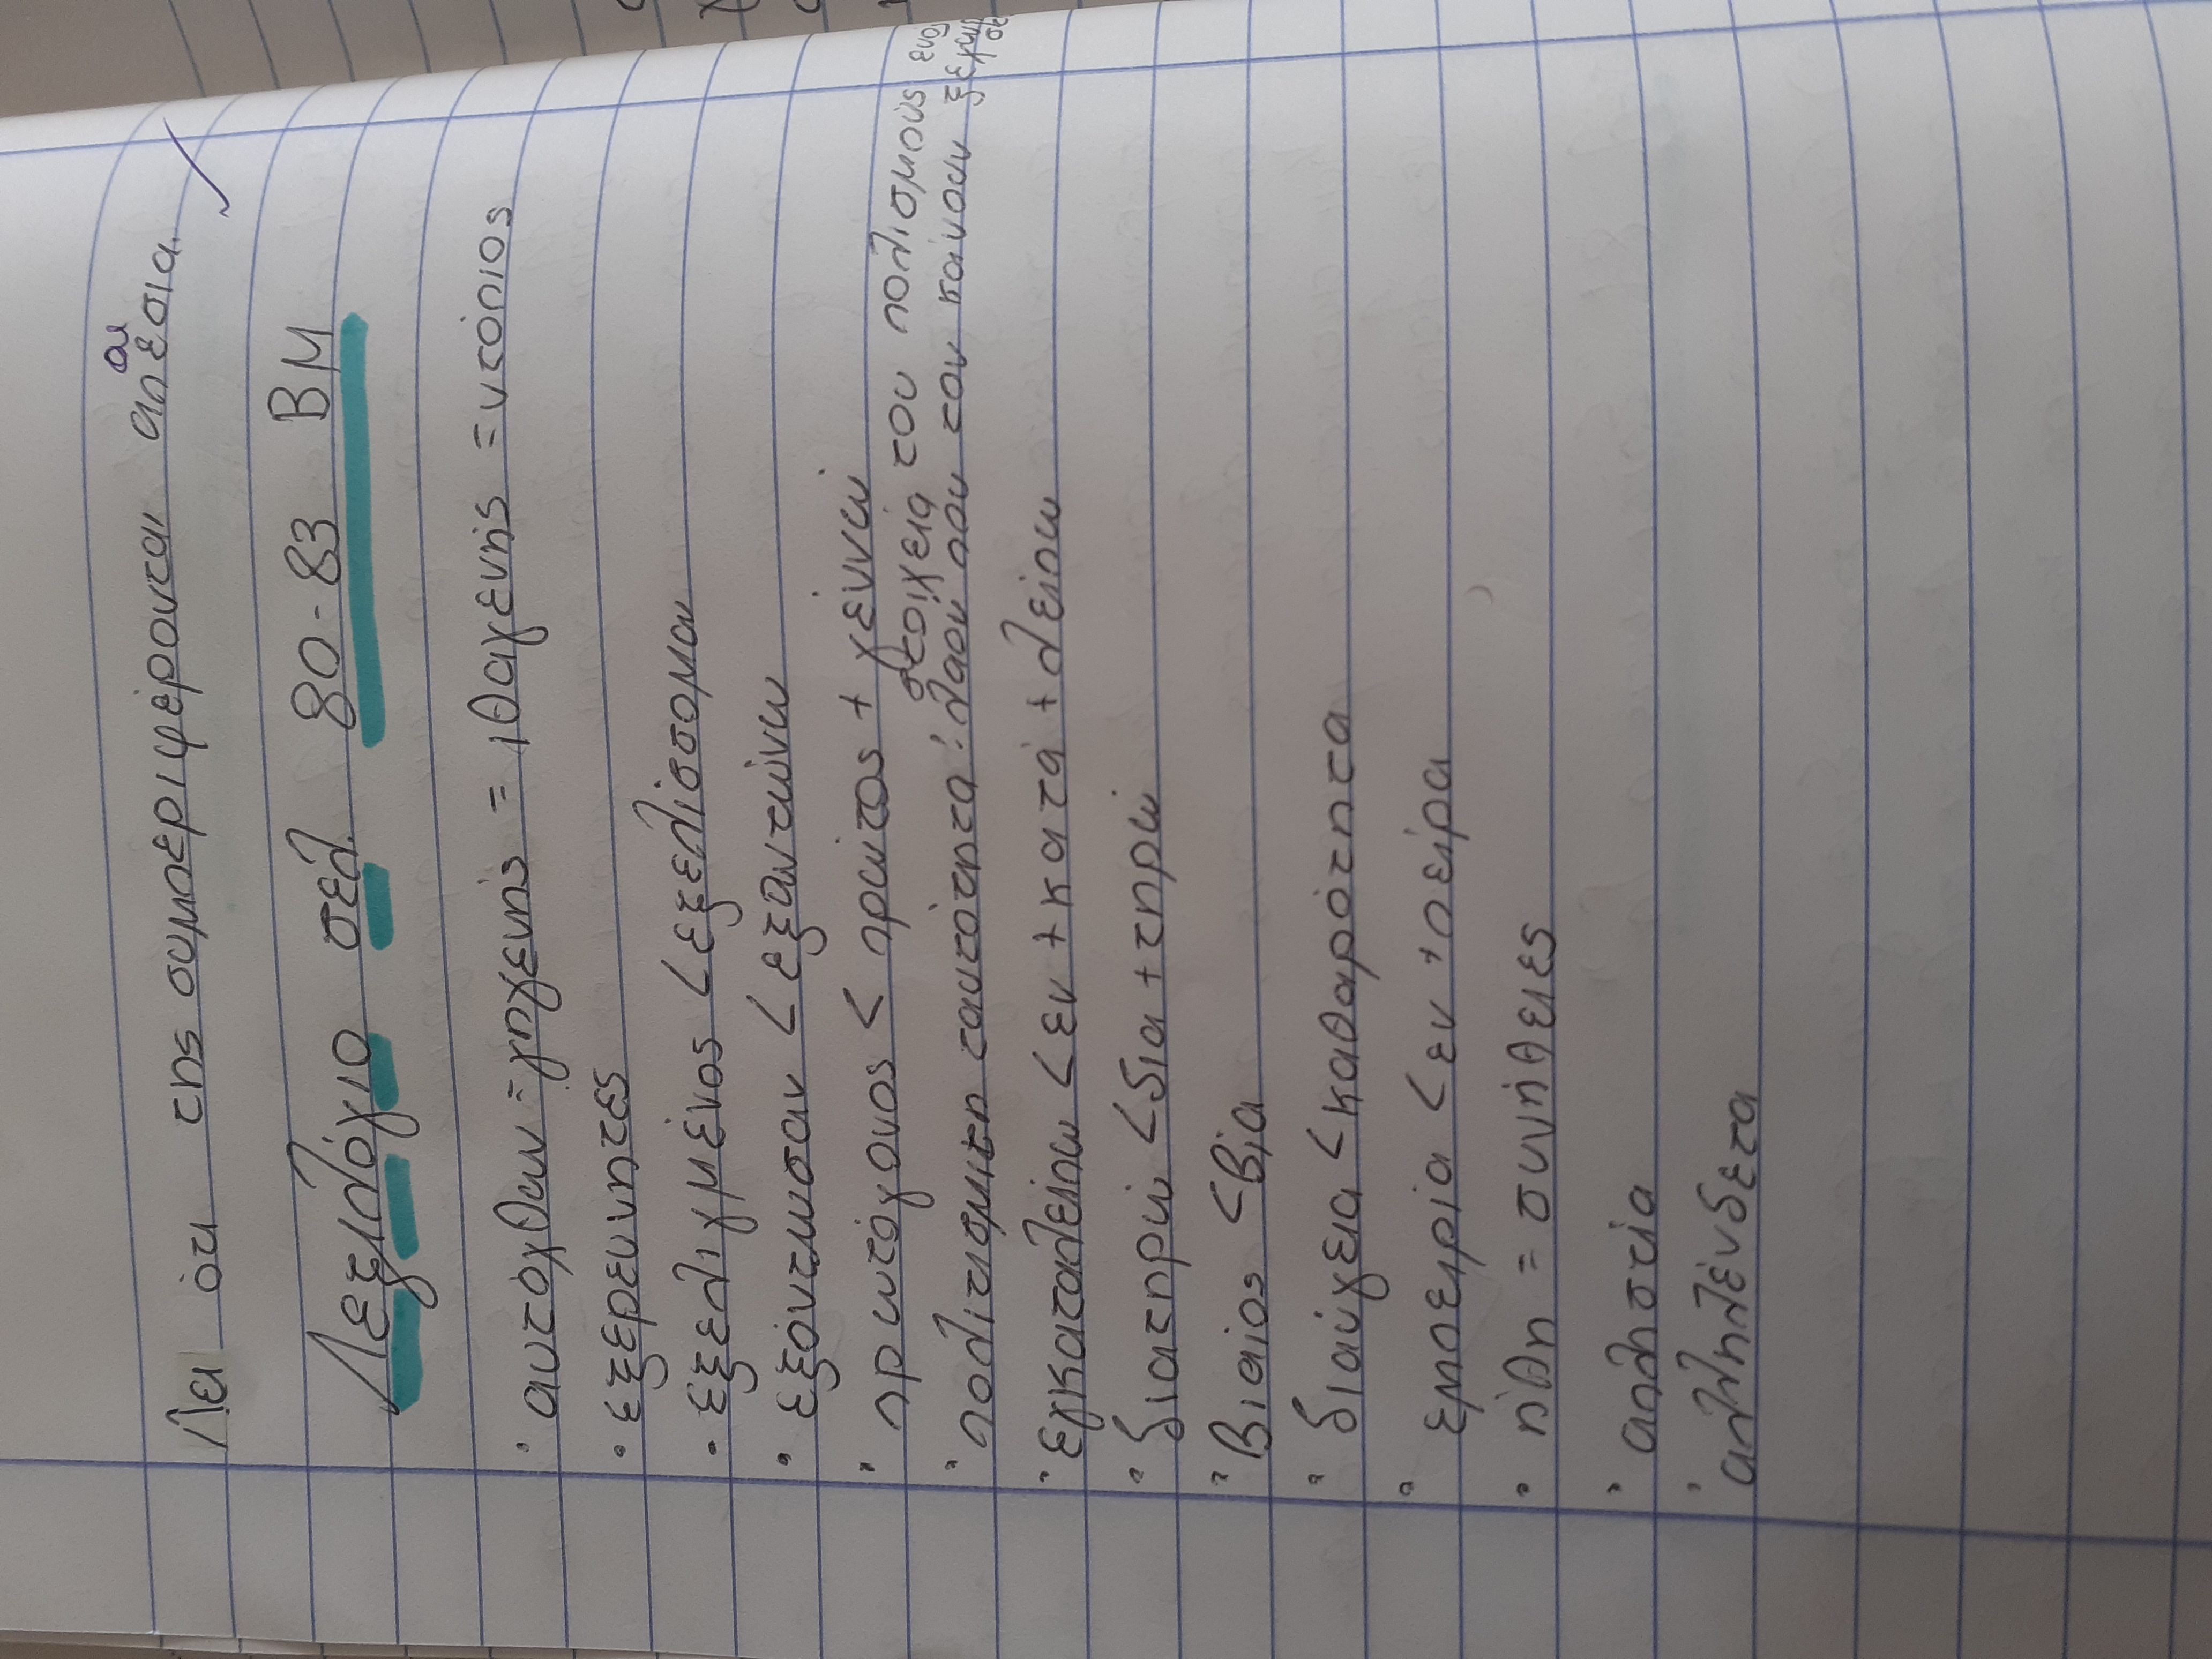 Λει ότι της συμπεριφέρονται απαίσια.
Λεξιλόγιο σελ. 80-83 ΒΜ
• αυτόχθων = γηγενής = ιθαγενής = ντόπιος
• εξερευνητές
• εξελιγμένος < εξελίσσομαι
• εξόντωσαν < εξοντώνω
• πρωτόγονος < πρώτος + γεννώ
στοιχεία του πολιτισμούς ενός
• πολιτισμική ταυτότητα: λαού που τον κάνουν
• εγκαταλείπω < εν + κατά + λείπω
• διατηρώ < δια + τηρώ
• Βίαιος < Βία
• διαύγεια < καθαρότητα
• εμπειρία < εν + πείρα
• ήθη = συνήθειες
• απληστία
• αλληλένδετα